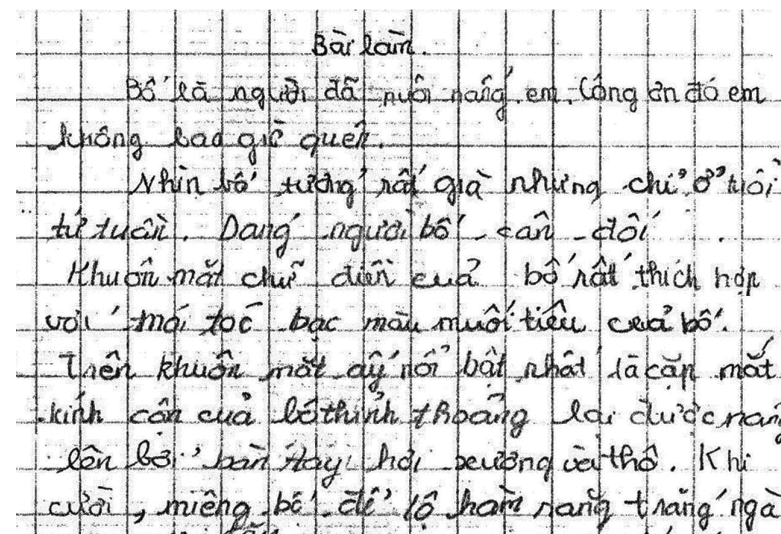 Bài làm.
Bố là người đã nuôi nấng em. Công ơn đó em
không bao giờ quên.
Nhìn bố tưởng rất già nhưng chỉ ở tuổi
tứ tuần. Dáng người bố cân đối.
Khuôn mặt chữ điền cuả bố rất thích hợp
với mái tóc bạc màu muối tiêu cuả bố.
Trên khuôn mặt ấy nổi bật nhất là cặp mắt
kính cận cuả bố thỉnh thoảng lại được nâng
lên bởi bàn tay hơi xương và thô. Khi
cười, miệng bố để lộ hàm răng trắng ngà